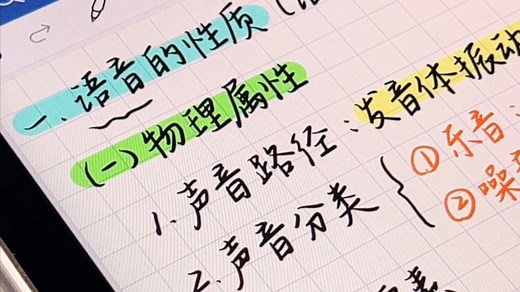 一、语音的性质
(一)物理属性
1.声音路径:发音体振动
2.声音分类
①乐音:
②噪音